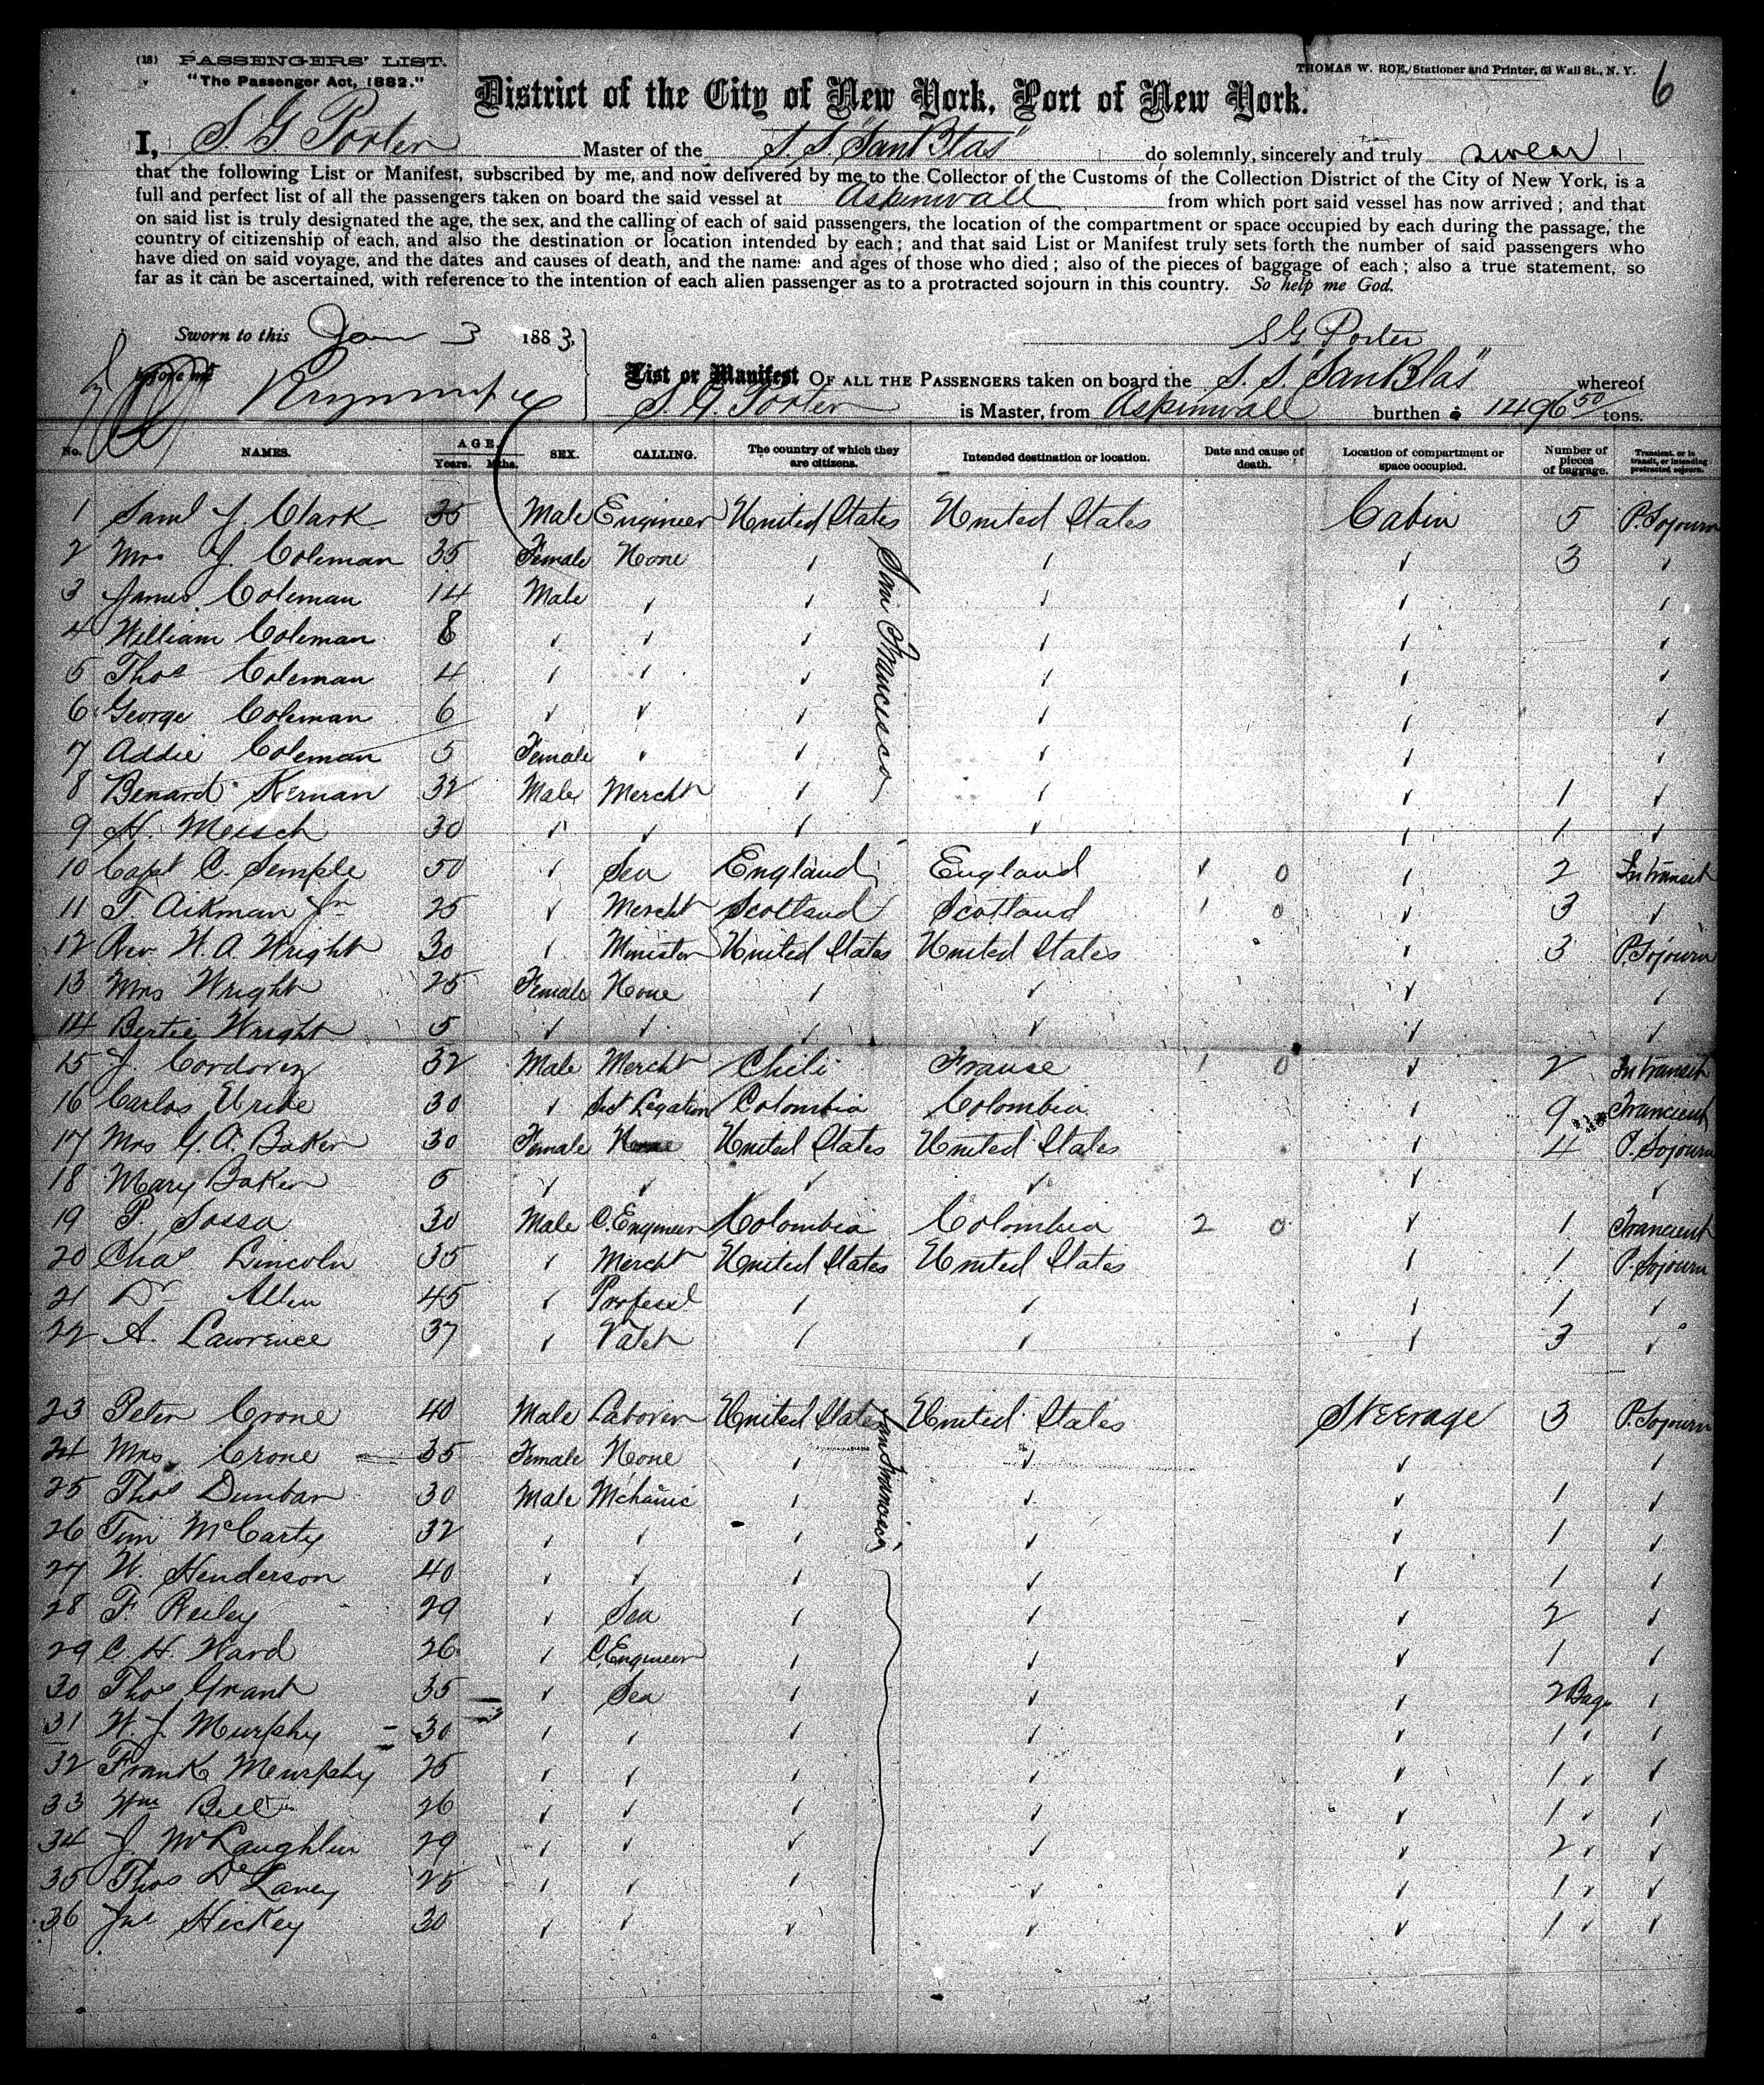 (18) PASSENGERS' LIST.
"The Passenger Act, 1882."
THOMAS W. ROE, Stationer and Printer, 63 Wall St., N. Y.
6
District of the City of New York, Port of New York.
I, S. G Porter Master of the S. S. "San Blas" do solemnly, sincerely and truly swear
that the following List or Manifest, subscribed by me, and now delivered by me to the Collector of the Customs of the Collection District of the City of New York, is a
full and perfect list of all the passengers taken on board the said vessel at Aspinwall from which port said vessel has now arrived; and that
on said list is truly designated the age, the sex, and the calling of each of said passengers, the location of the compartment or space occupied by each during the passage, the
country of citizenship of each, and also the destination or location intended by each; and that said List or Manifest truly sets forth the number of said passengers who
have died on said voyage, and the dates and causes of death, and the names and ages of those who died; also of the pieces of baggage of each; also a true statement, so
far as it can be ascertained, with reference to the intention of each alien passenger as to a protracted sojourn in this country. So help me God.
Sworn to this Jan 3 1883. S G Porter
before me
List or Manifest OF ALL THE PASSENGERS taken on board the S. S. "San Blas" whereof
S. G. Porter is Master, from Aspinwall burthen 1496 50/ tons.
No. NAMES. AGE. Years. Mths. SEX. CALLING. The country of which they are citizens. Intended destination or location. Date and cause of death. Location of compartment or space occupied. Number of pieces of baggage. Transient, or in transit, or intending protracted sojourn.
1 Saml J. Clark 35 Male Engineer United States United States Cabin 5 P. Sojourn
2 Mrs J. Coleman 35 Female None 3
San Francisco
3 James Coleman 14 Male
4 William Coleman 8
5 Thos Coleman 4
6 George Coleman 6
7 Addie Coleman 5 Female
8 Benard Kernan 32 Male Mercht 1
9 H. Meisch 30 1
10 Capt C. Semple 50 Sea England England 0 2 In transit
11 T. Aikman Jr 25 Mercht Scotland Scotland 1 0 3
12 Rev. W. A. Wright 30 Minister United States United States 3 P. Sojourn
13 Mrs Wright 25 Female None
14 Bertie Wright 5
15 J. Cordovez 32 Male Mercht Chili Franse 1 0 2 In transit
16 Carlos Uribe 30 Sect Legation Colombia Colombia 9 Trancient
17 Mrs G. A. Baker 30 Female None United States United States 4 P. Sojourn
18 Mary Baker 5
19 P. Sossa 30 Male C. Engineer Colombia Colombia 2 0 1 Trancient
20 Chas Lincoln 35 Mercht United States United States 1 P. Sojourn
21 Dr Allen 45 1
22 A. Lawrence 37 Valet 3
23 Peter Crone 40 Male Laborer United States United States Steerage 3 P. Sojourn
San Francisco
24 Mrs Crone 35 Female None
25 Thos Dunbar 30 Male Mchanic 1
26 Tim McCarty 32 1
27 W. Henderson 40 1
28 F. Reiley 29 Sea 2
29 C. H. Ward 26 C. Engineer 1
30 Thos Grant 35 Sea 2 Bags
31 W. J. Murphy 30 1
32 Frank Murphy 25 1
33 Wm Bell 26 1
34 J. McLaughlin 29 2
35 Thos De Laney 25 1
36 Jas Hickey 30 1